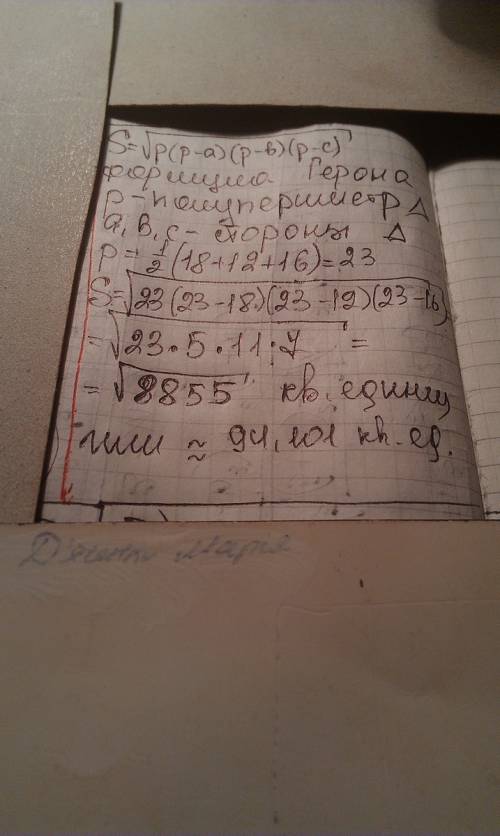 S=√p(p-a)(p-в)(p-c)
формула Герона
p-полупериметр Δ
a,в,c-стороны Δ
p=½(18+12+16)=23
S=√23(23-18)(23-12)(23-16)
=√23·5·11·7 =
=√8855 кв. единиц
или ≈ 94,101 кв.ед.
Марія